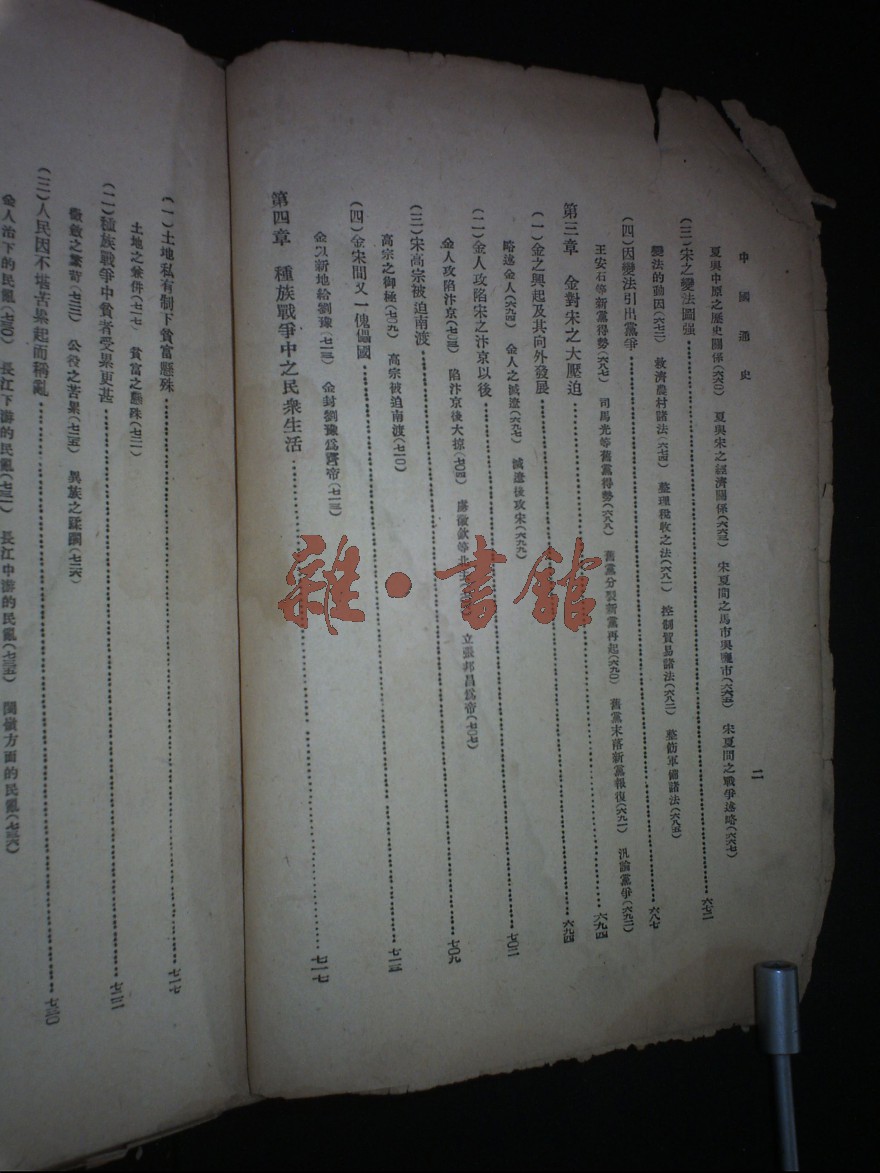 中國通史
二
夏與中原之歷史關係(六六〇) 夏與宋之經濟關係(六六三) 宋夏間之馬市與鹽市(六六五) 宋夏間之戰爭述略(六六七)
(三)宋之變法圖强……六七二
變法的動因(六七二) 救濟農村諸法(六七四) 整理稅收之法(六八一) 控制貿易諸法(六八二) 整飭軍備諸法(六八五)
(四)因變法引出黨爭……六八七
王安石等新黨得勢(六八七) 司馬光等舊黨得勢(六八八) 舊黨分裂新黨再起(六九〇) 舊黨末落新黨報復(六九一) 汎論黨爭(六九二)
第三章 金對宋之大壓迫……六九四
(一)金之興起及其向外發展……六九四
略述金人(六九四) 金人之滅遼(六九七) 滅遼後攻宋(六九九)
(二)金人攻陷宋之汴京以後……七〇二
金人攻陷汴京(七〇二) 陷汴京後大掠(七〇四) 虜徽欽等北去 立張邦昌爲帝(七〇七)
(三)宋高宗被迫南渡……七〇九
高宗之御極(七〇九) 高宗被迫南渡(七一〇)
(四)金宋間又一傀儡國……七一三
金以新地給劉豫(七一三) 金封劉豫爲齊帝(七一三)
第四章 種族戰爭中之民衆生活……七一七
(一)土地私有制下貧富懸殊……七一七
土地之兼併(七一七) 貧富之懸殊(七二一)
(二)種族戰爭中貧者受累更甚……七二二
徵斂之繁苛(七二二) 公役之苦累(七二五) 異族之蹂躪(七二六)
(三)人民因不堪苦累起而稱亂……七三〇
金人治下的民亂(七三〇) 長江下游的民亂(七三一) 長江中游的民亂(七三五) 閩嶺方面的民亂(七三六)
雜·書館